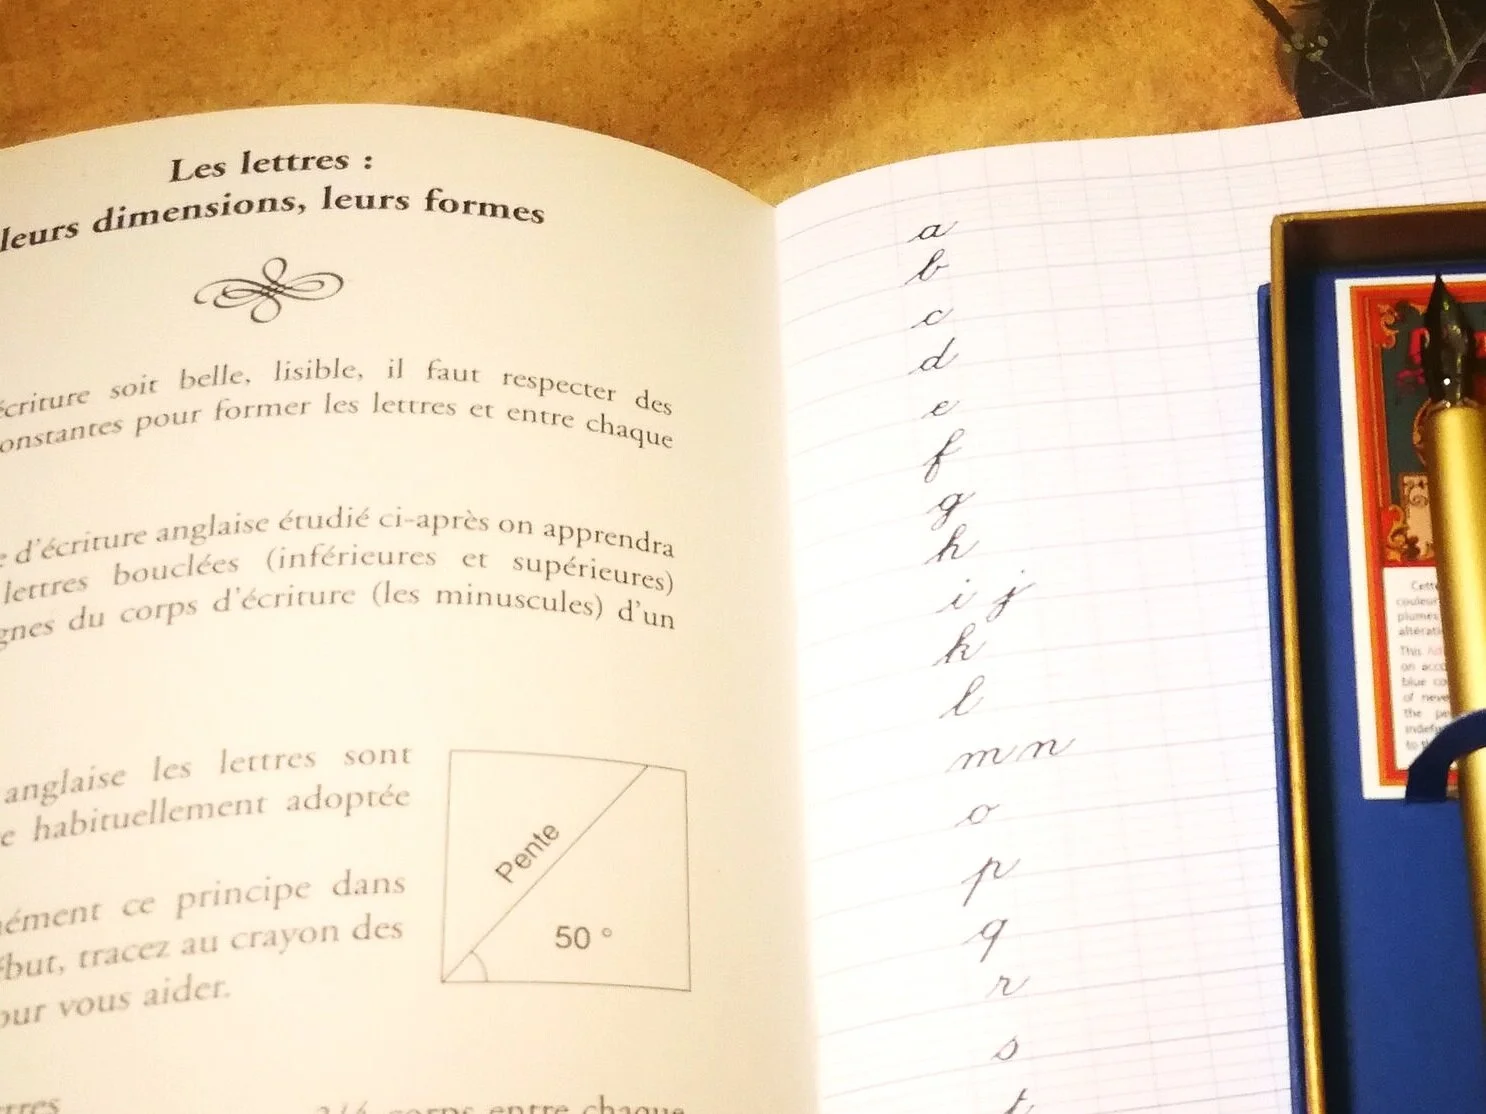 Les lettres :
leurs dimensions, leurs formes
écriture soit belle, lisible, il faut respecter des
pour former les lettres et entre chaque
d'écriture anglaise étudié ci-après on apprendra
lettres bouclées (inférieures et supérieures)
du corps d'écriture (les minuscules) d'un
anglaise les lettres sont
habituellement adoptée
ce principe dans
tracez au crayon des
vous aider.
Pente
50 °
corps entre chaque
a
b
c
d
e
f
g
h
i j
k
l
m n
o
p
q
r
s
t
Cette
couleur
plumes
This
on
blue
of
the
to